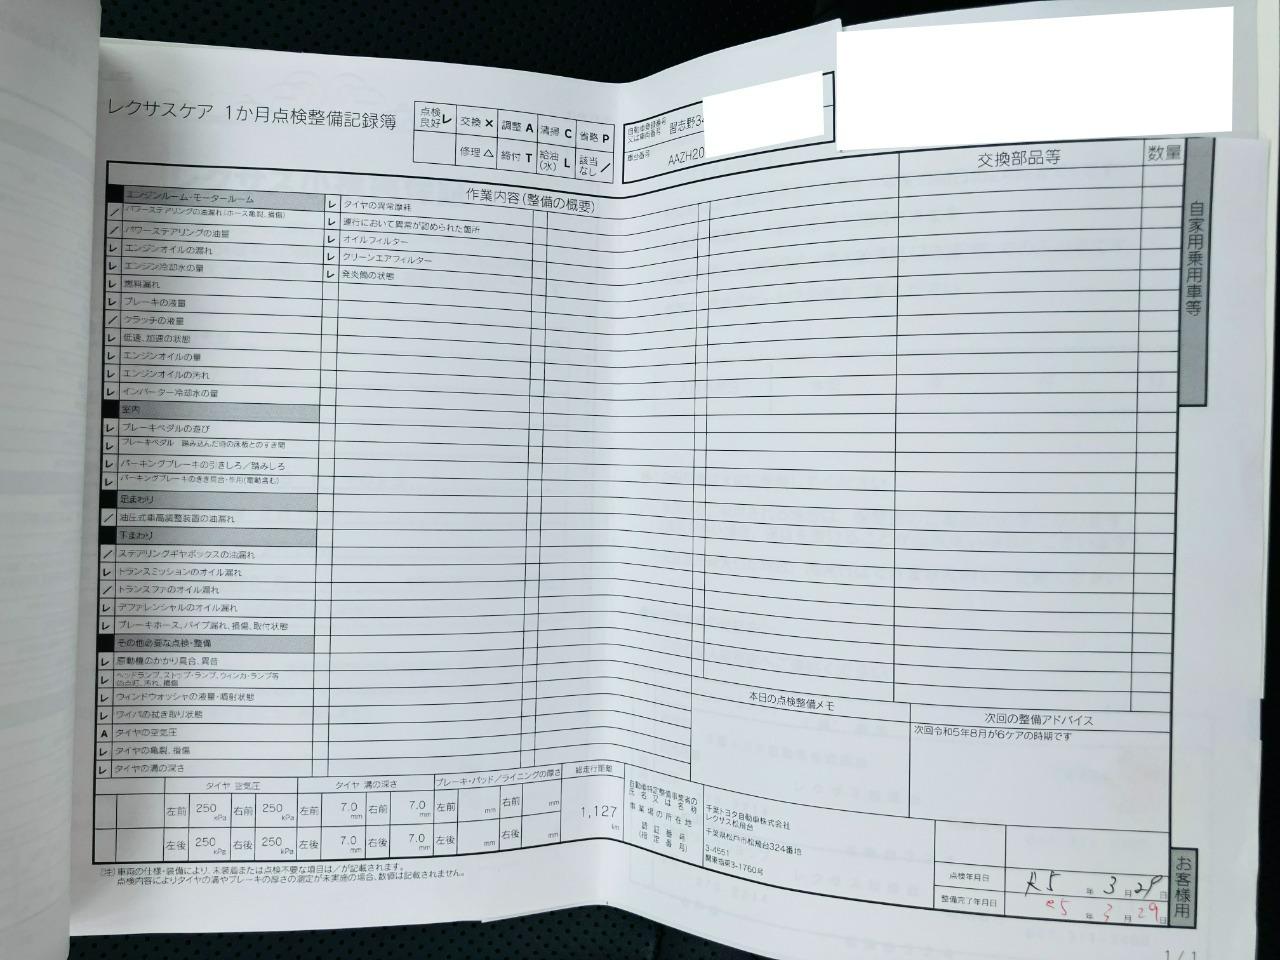 レクサスケア 1か月点検整備記録簿
点検良好 レ 交換 × 調整 A 清掃 C 省略 P
修理 △ 締付 T 給油(水) L 該当なし /
自動車登録番号又は車両番号 習志野34
車台番号 AAZH20
作業内容(整備の概要)
交換部品等
数量
自家用乗用車等
エンジンルーム・モータールーム
/ パワーステアリングの油漏れ(ホース亀裂、損傷)
/ パワーステアリングの油量
レ エンジンオイルの漏れ
レ エンジン冷却水の量
レ 燃料漏れ
レ ブレーキの液量
/ クラッチの液量
レ 低速、加速の状態
レ エンジンオイルの量
レ エンジンオイルの汚れ
レ インバーター冷却水の量
室内
レ ブレーキペダルの遊び
レ ブレーキペダル 踏み込んだ時の床板とのすき間
レ パーキングブレーキの引きしろ/踏みしろ
レ パーキングブレーキのきき具合・作用(電動含む)
足まわり
/ 油圧式車高調整装置の油漏れ
下まわり
/ ステアリングギヤボックスの油漏れ
レ トランスミッションのオイル漏れ
/ トランスファのオイル漏れ
レ デファレンシャルのオイル漏れ
レ ブレーキホース、パイプ漏れ、損傷、取付状態
その他必要な点検・整備
レ 原動機のかかり具合、異音
レ ヘッドランプ、ストップ・ランプ、ウィンカ・ランプ等の点灯、汚れ、損傷
レ ウィンドウォッシャの液量・噴射状態
レ ワイパの拭き取り状態
A タイヤの空気圧
レ タイヤの亀裂、損傷
レ タイヤの溝の深さ
レ タイヤの異常摩耗
レ 運行において異常が認められた箇所
レ オイルフィルター
レ クリーンエアフィルター
レ 発炎筒の状態
本日の点検整備メモ
次回の整備アドバイス
次回令和5年8月が6ケアの時期です
タイヤ 空気圧
左前 250 kPa 右前 250 kPa
左後 250 kPa 右後 250 kPa
タイヤ 溝の深さ
左前 7.0 mm 右前 7.0 mm
左後 7.0 mm 右後 7.0 mm
ブレーキ・パッド/ライニングの厚さ
左前 mm 右前 mm
左後 mm 右後 mm
総走行距離
1,127 km
自動車特定整備事業者の氏名又は名称
事業場の所在地
認証番号(指定番号)
千葉トヨタ自動車株式会社
レクサス松飛台
千葉県松戸市松飛台324番地
3-4551
関東指第3-1760号
点検年月日 R5 年 3 月 29 日
整備完了年月日 R5 年 3 月 29 日
お客様用
(注)車両の仕様・装備により、未装着または点検不要な項目は/が記載されます。
点検内容によりタイヤの溝やブレーキの厚さの測定が未実施の場合、数値は記載されません。
1/1